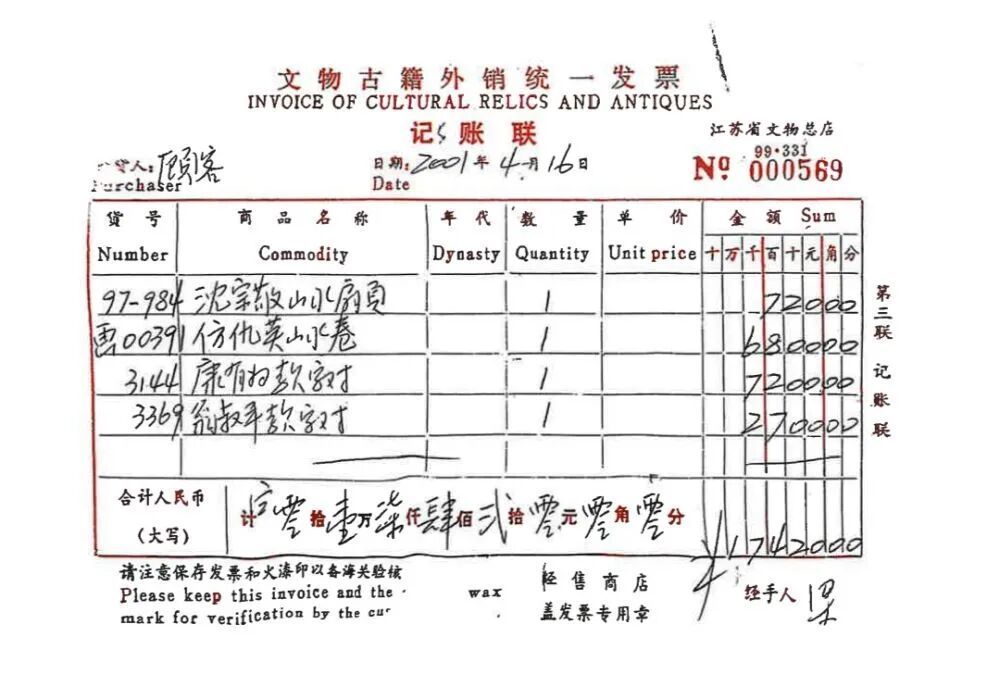 文物古籍外销统一发票
INVOICE OF CULTURAL RELICS AND ANTIQUES
记账联
江苏省文物总店
99·331
Nº 000569
货人: 顾客
Purchaser
日期: 2001年4月16日
Date
货号 商品名称 年代 数量 单价 金额 Sum
Number Commodity Dynasty Quantity Unit price 十万千百十元角分
97-984 沈宗敬山水扇頁 1 72000
画00391 仿仇英山水卷 1 680000
3144 康有为款字对 1 720000
3369 翁叔平款字对 1 270000
合计人民币
(大写)
计 零拾壹万柒仟肆佰贰拾零元零角零分
¥1742000
第三联 记账联
请注意保存发票和火漆印以备海关验核
Please keep this invoice and the wax
mark for verification by the cu
经售商店
盖发票专用章
经手人